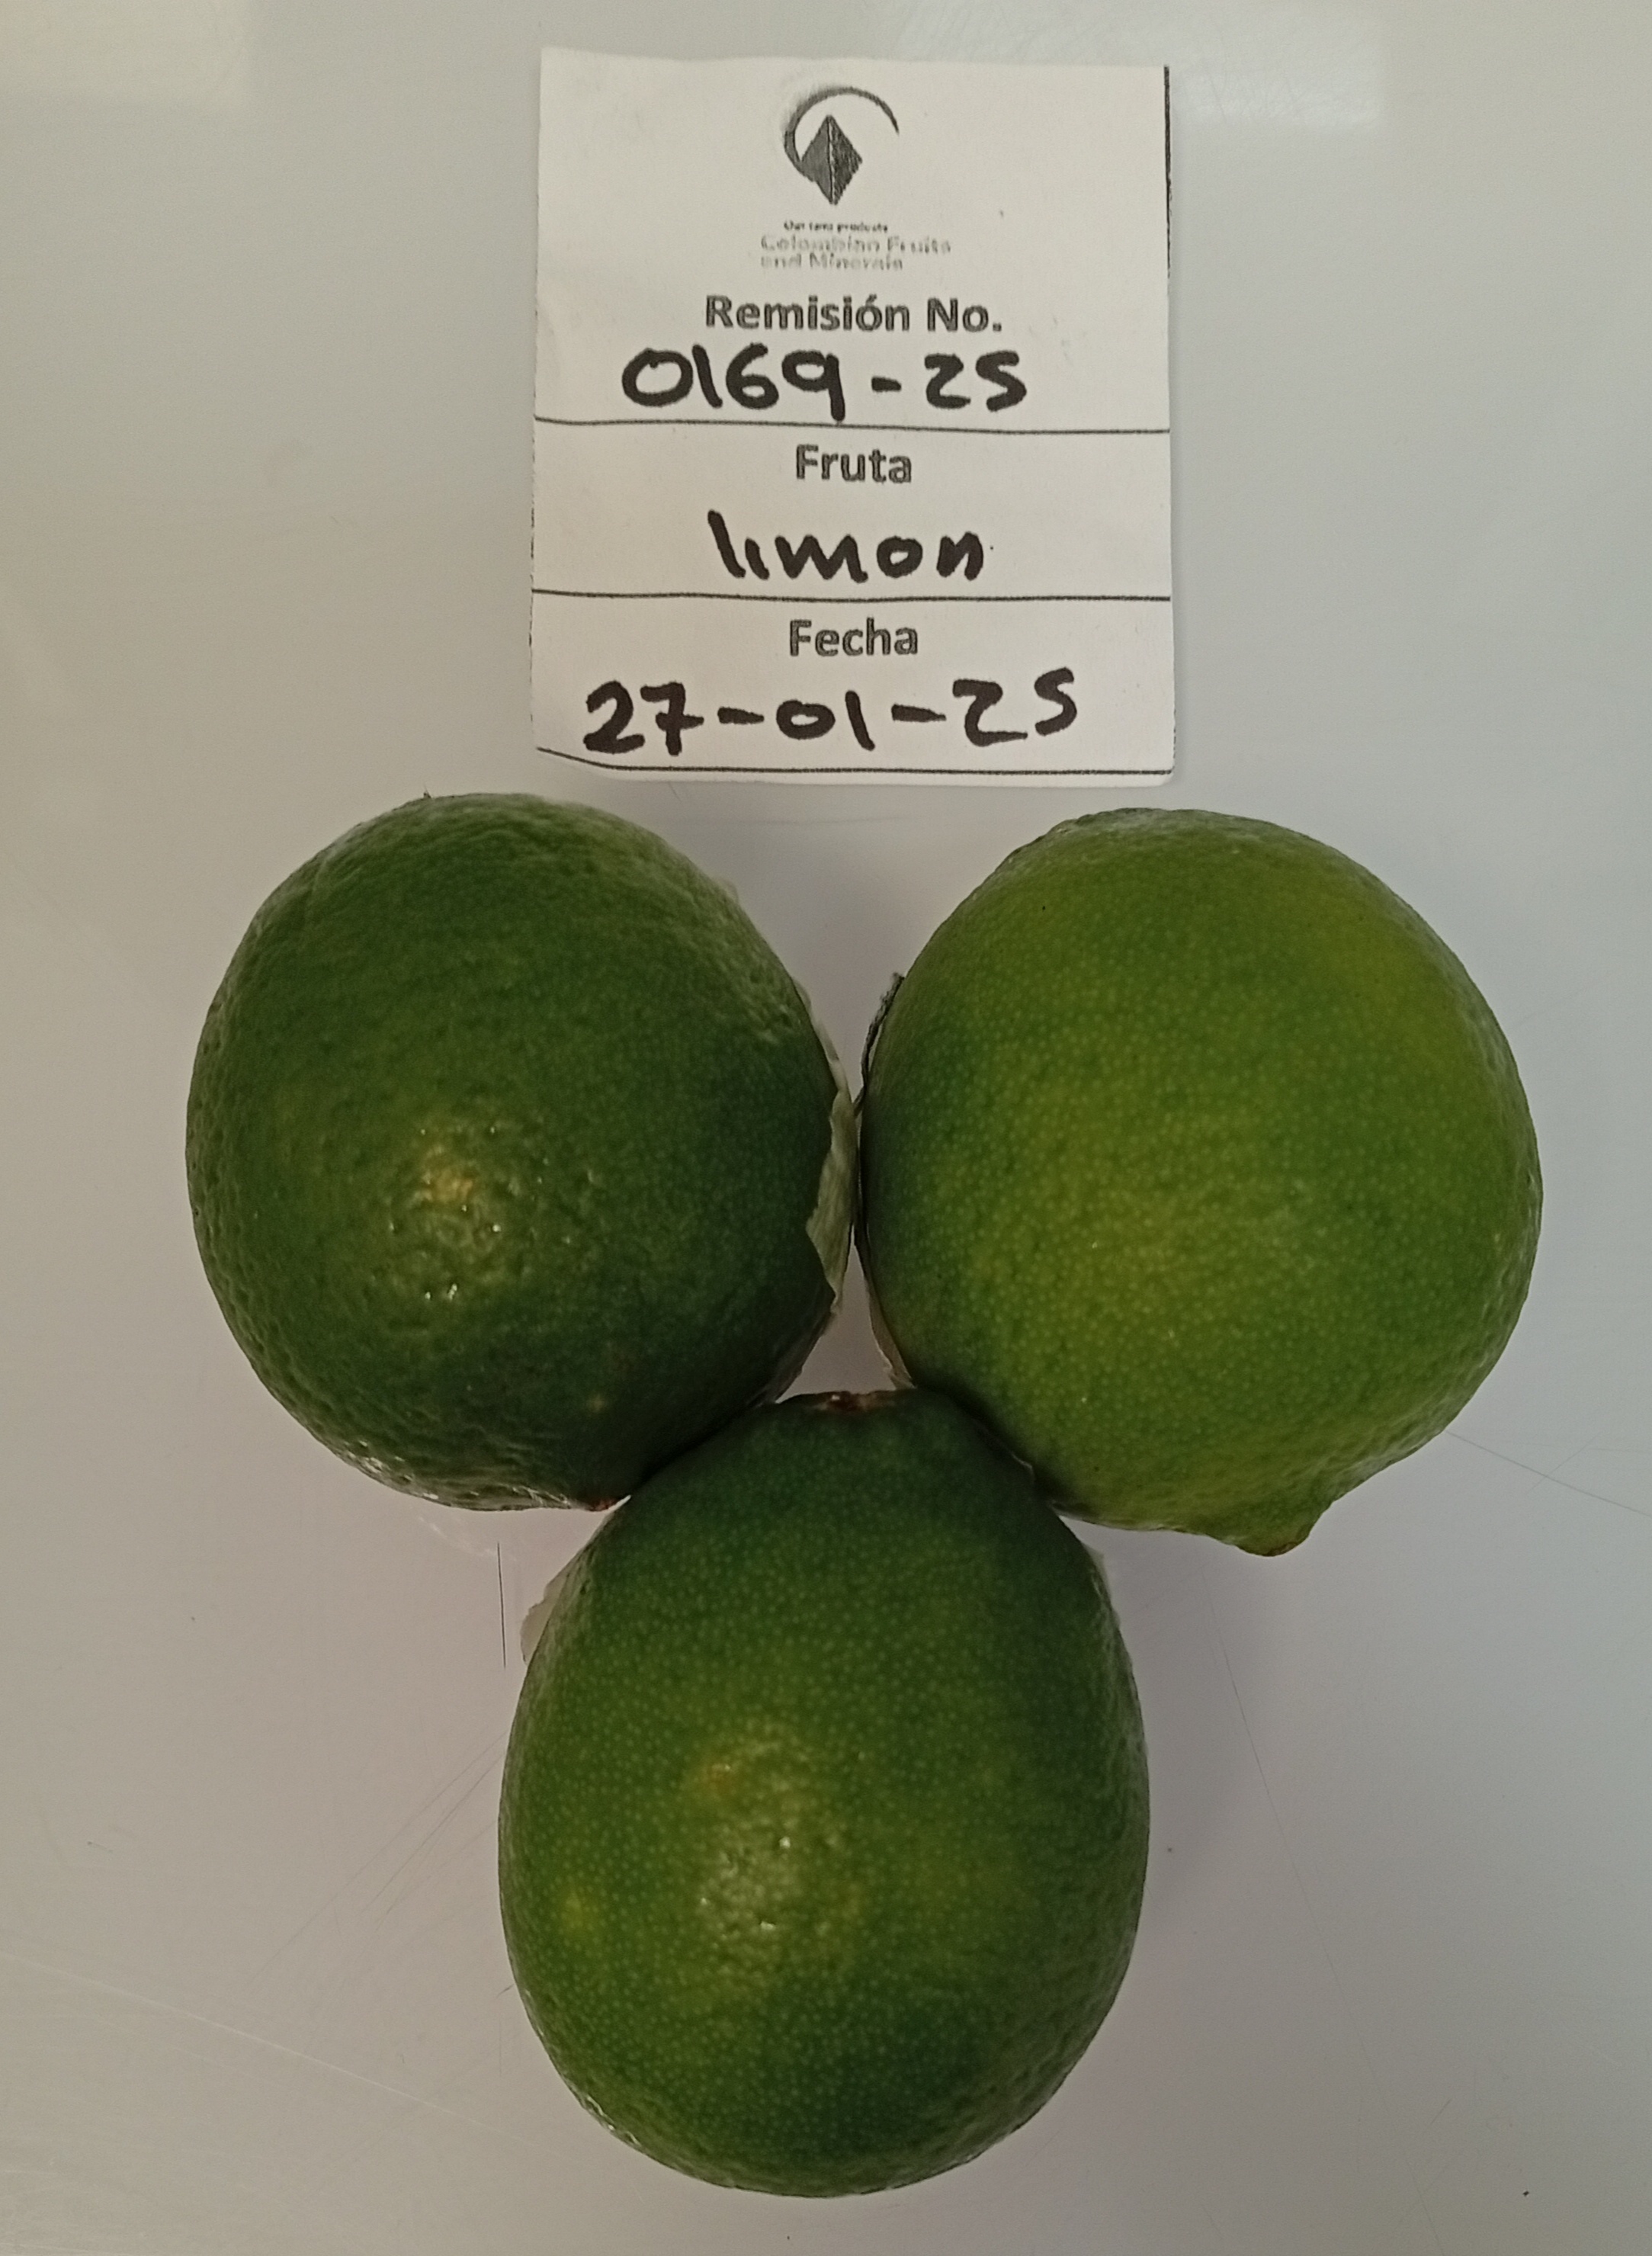 Our land products
Colombian Fruits
and Minerals
Remisión No.
0169-25
Fruta
limon
Fecha
27-01-25